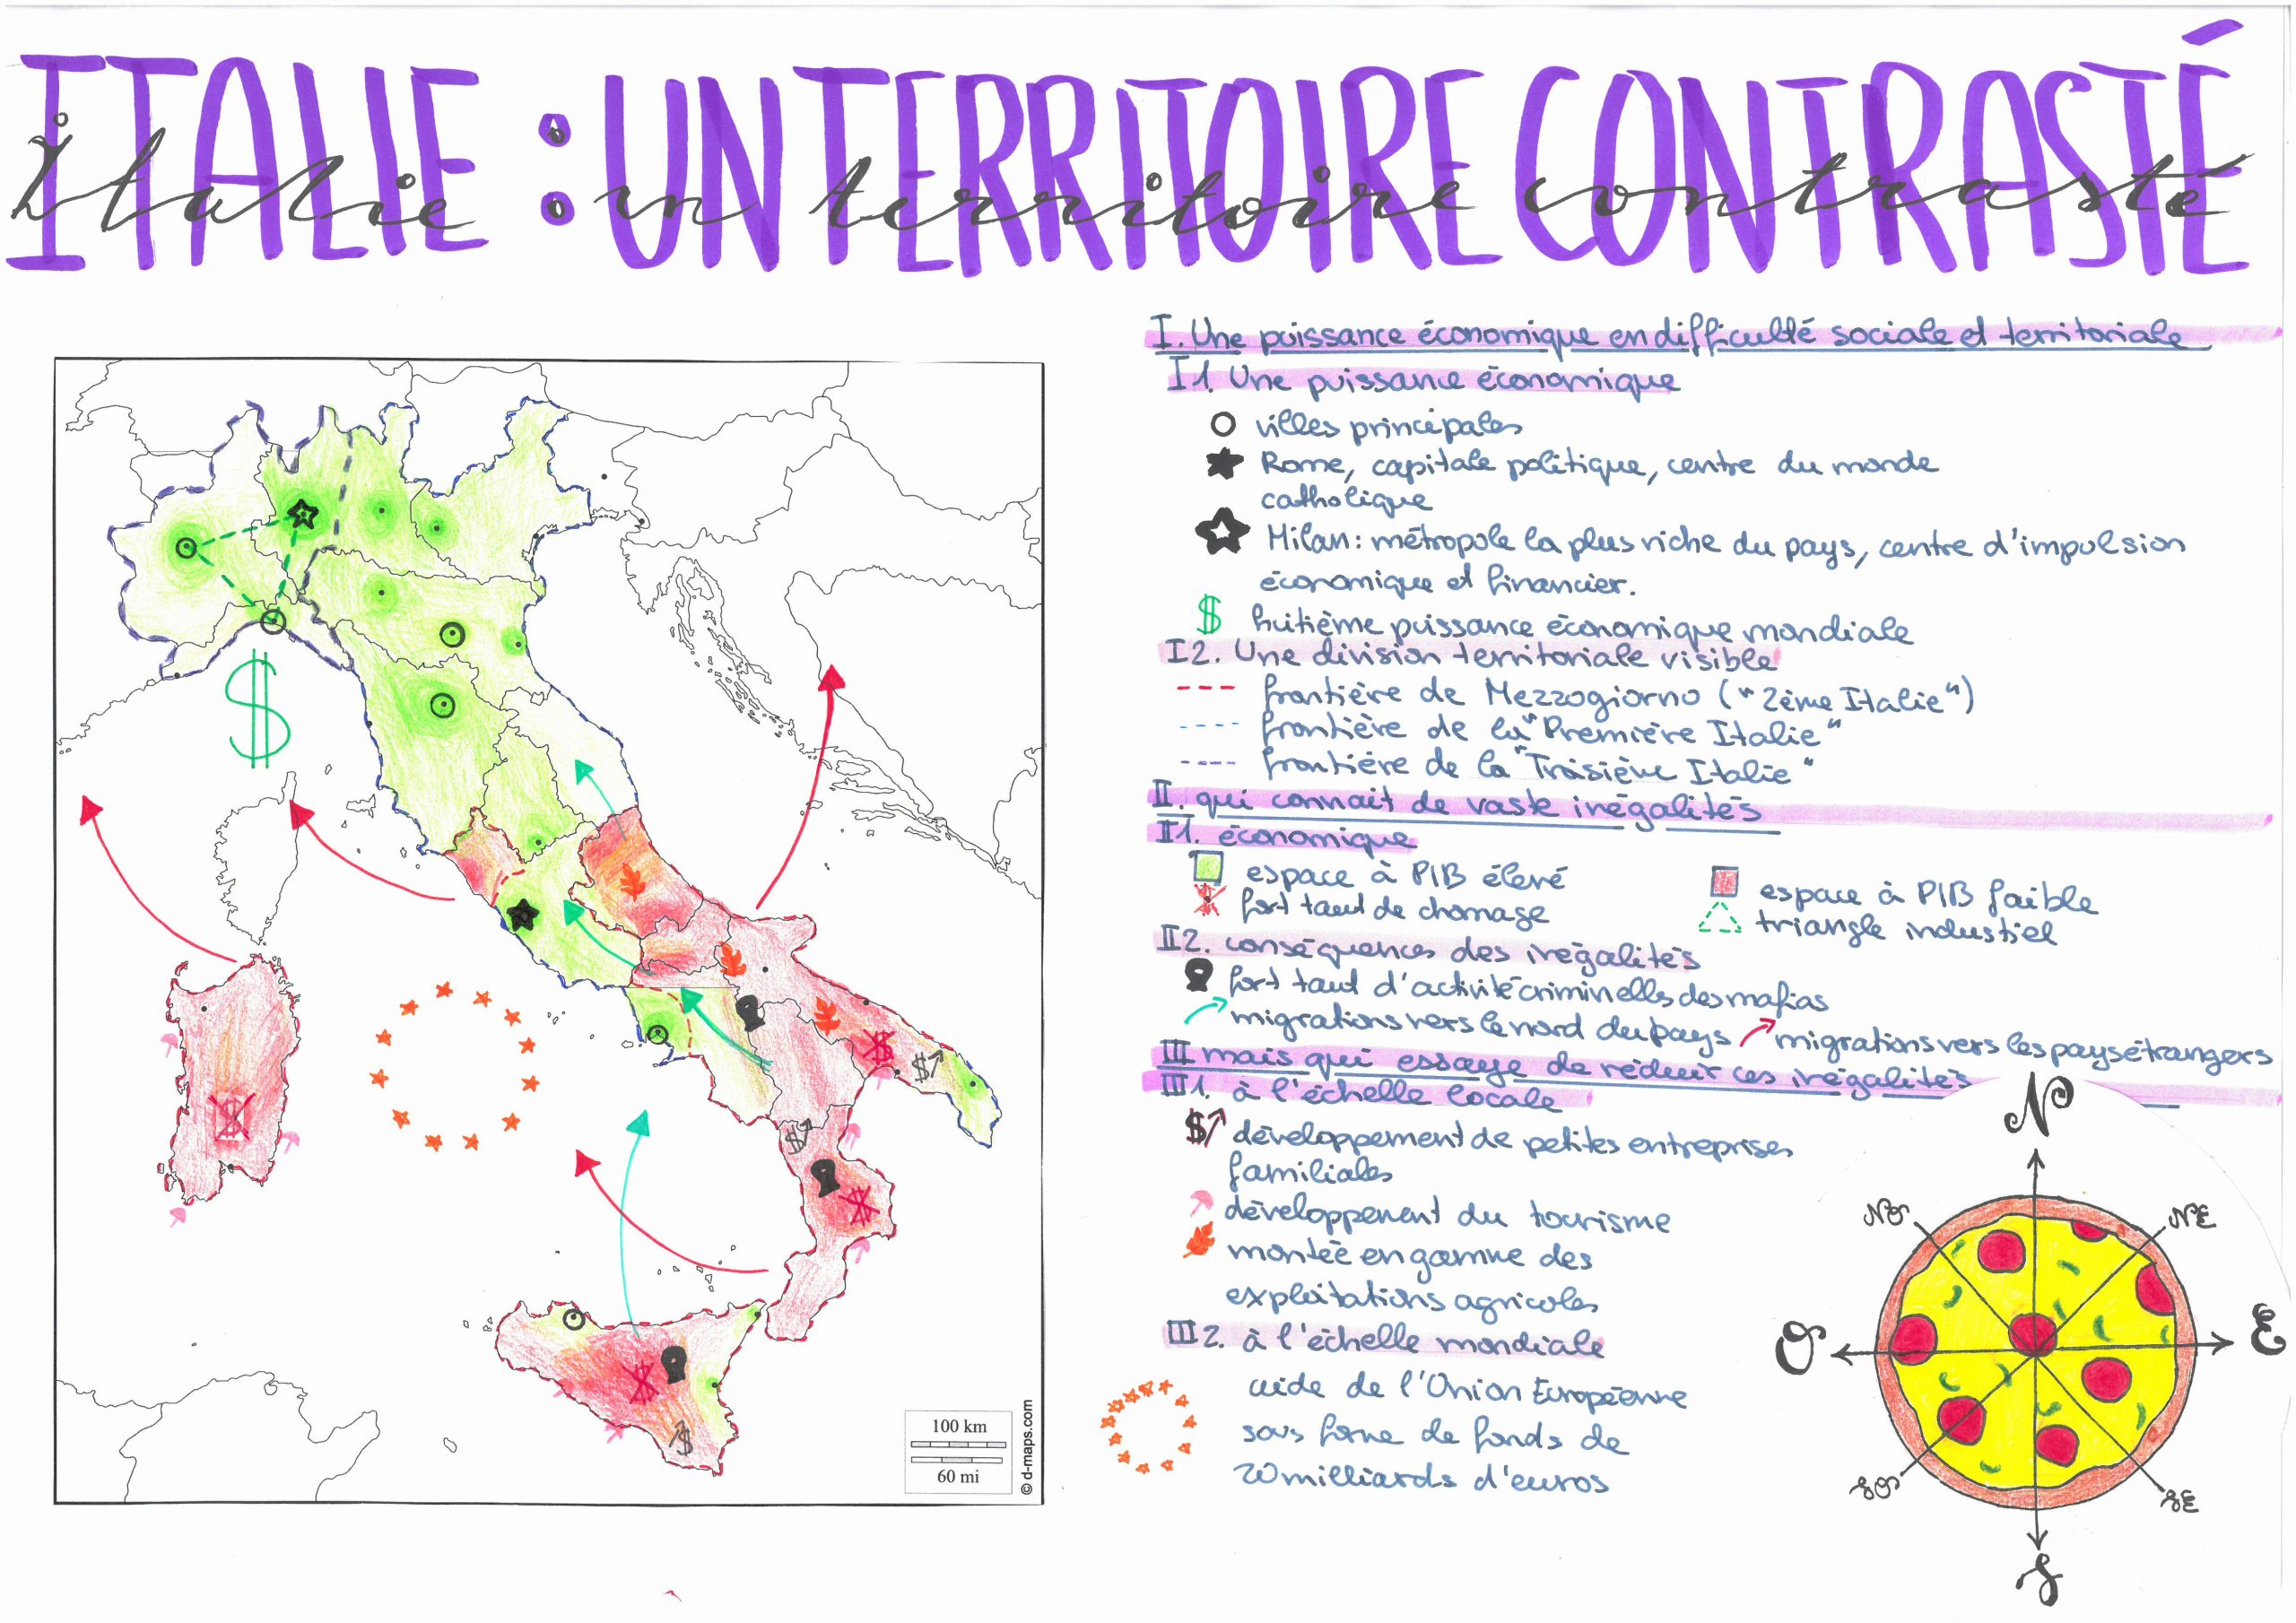 ITALIE : UN TERRITOIRE CONTRASTÉ
Italie : un territoire contrasté
I. Une puissance économique en difficulté sociale et territoriale
I1. Une puissance économique
villes principales
Rome, capitale politique, centre du monde
catholique
Milan : métropole la plus riche du pays, centre d'impulsion
économique et financier.
$ huitième puissance économique mondiale
I2. Une division territoriale visible
frontière de Mezzogiorno ("2ème Italie")
frontière de la "Première Italie"
frontière de la "Troisième Italie"
II. qui connait de vaste inégalités
II1. économique
espace à PIB élevé
espace à PIB faible
$ fort taut de chomage
triangle industiel
II2. conséquences des inégalités
fort taut d'activité criminelles des mafias
migrations vers le nord du pays
migrations vers les pays étrangers
III mais qui essaye de réduir ces inégalités
III1. à l'échelle locale
$ développement de petites entreprises
familiales
développement du tourisme
montée en gamme des
exploitations agricoles
III2. à l'échelle mondiale
aide de l'Union Européenne
sous forme de fonds de
20 milliards d'euros
N
NO
NE
O
E
SO
SE
S
$
$
$
$
$
$
$
$
100 km
60 mi
© d-maps.com